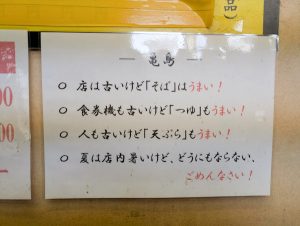 品)
— 亀島 —
○ 店は古いけど「そば」はうまい!
○ 食券機も古いけど「つゆ」もうまい!
○ 人も古いけど「天ぷら」もうまい!
○ 夏は店内暑いけど、どうにもならない、
ごめんなさい!
00
00